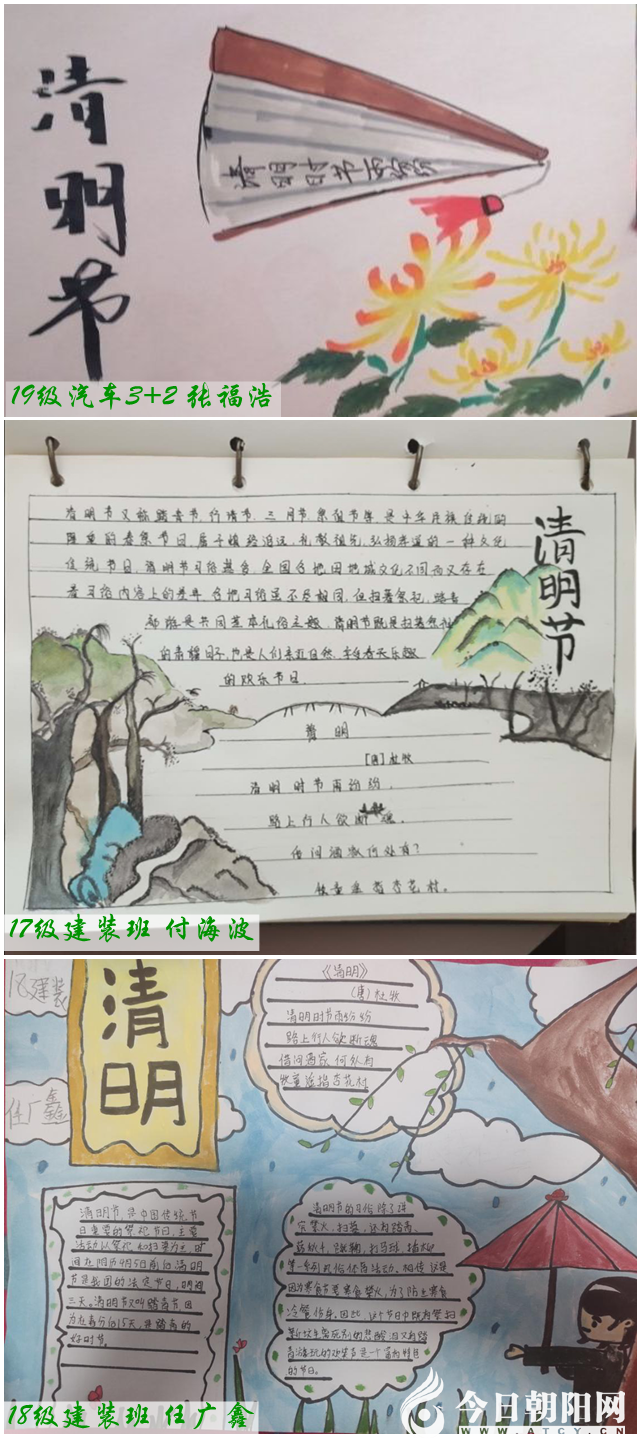 清明节
清明时节雨纷纷
19级汽车3+2 张福浩
清明节又称踏青节、行清节、三月节、祭祖节等,是中华民族传统的
隆重的春祭节日,属于慎终追远、礼敬祖先、弘扬孝道的一种文化
传统节日。清明节习俗甚多,全国各地因地域文化不同而又存在
着习俗内容上的差异,各地习俗虽不尽相同,但扫墓祭祀、踏青
郊游是共同基本礼俗主题。清明节既是扫墓祭祖
的肃穆日子,也是人们亲近自然、享受春天乐趣
的欢乐节日
清明节
清明
[唐]杜牧
清明时节雨纷纷,
路上行人欲断魂。
借问酒家何处有?
牧童遥指杏花村。
17级建装班 付海波
18建装
任广鑫
清明
《清明》
(唐)杜牧
清明时节雨纷纷
路上行人欲断魂
借问酒家何处有
牧童遥指杏花村
清明节,是中国传统节
日重要的祭祀节日,主要
活动以祭祀和扫墓为主,时
间在阳历4月5日前后清明
节是我国的法定节日,明初
三天。清明节又叫踏青节,因
为在春分后15天,是踏青的
好时节。
清明节的习俗除了讲
究禁火、扫墓,还有踏青、
荡秋千、蹴鞠、打马球、插柳
等一系列风俗体育活动。相传这是
因为寒食节要寒食禁火,为了防止寒食
冷餐伤身。因此,这个节日中既有祭扫
新坟生离死别的悲酸泪,又有踏
青游玩的欢笑声,是一个富有特色
的节日。
18级建装班 任广鑫
今日朝阳网
WWW.ATCY.CN